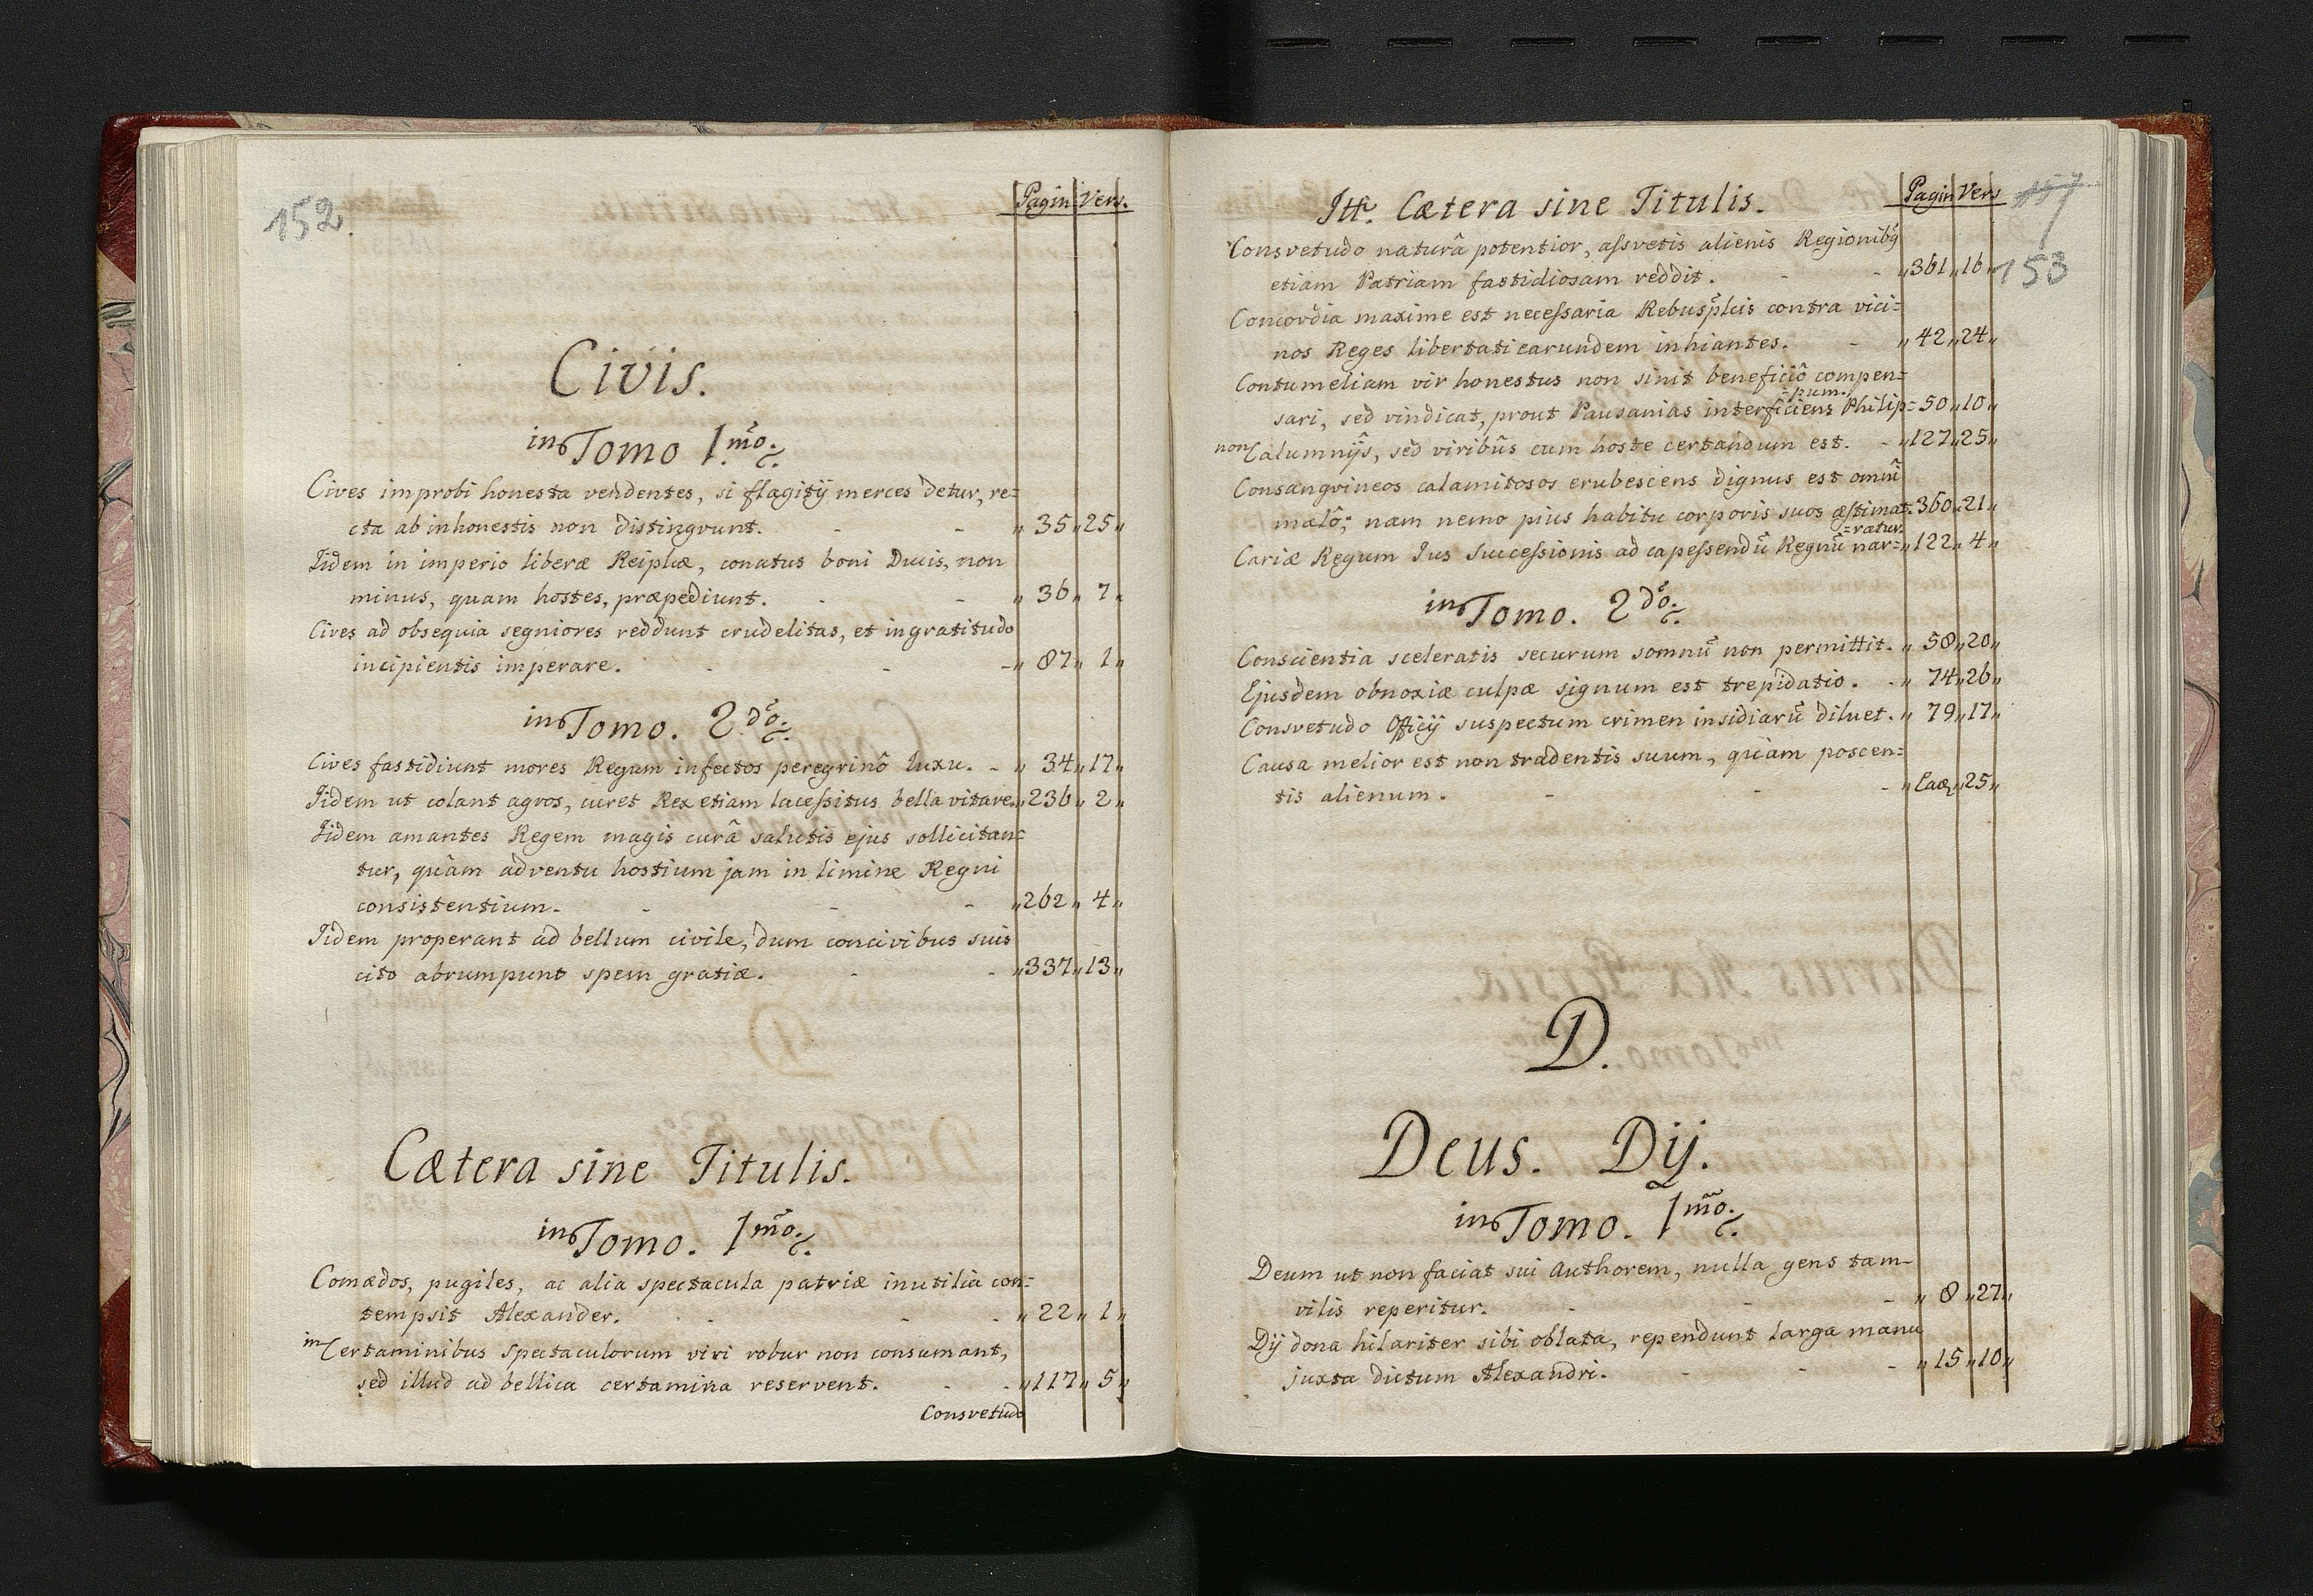 152.
Pagin Vers.
Civis.
in Tomo 1.mo:
Cives improbi honesta vendentes, si flagitij merces detur, re=
cta ab inhonestis non distingvunt. - - „ 35 „ 25 „
Iidem in imperio liberæ Reiplcæ, conatus boni Ducis, non
minus, quam hostes, præpediunt. - - „ 36 „ 7 „
Cives ad obsequia segniores reddunt crudelitas, et ingratitudo
incipientis imperare. - - - „ 87 „ 1 „
in Tomo. 2do:
Cives fastidiunt mores Regum infectos peregrinô luxu. - „ 34 „ 17 „
Iidem ut colant agros, curet Rex etiam lacessitus bella vitare. „ 236 „ 2 „
Iidem amantes Regem magis curâ salutis ejus sollicitan=
tur, quàm adventu hostium jam in limine Regni
consistentium. - - - „ 262 „ 4 „
Iidem properant ad bellum civile, dum concivibus suis
cito abrumpunt spem gratiæ. - - „ 337 „ 13 „
Cætera sine Titulis.
in Tomo. 1mo:
Comædos, pugiles, ac alia spectacula patriæ inutilia con=
tempsit Alexander. - - - „ 22 „ 1 „
in Certaminibus spectaculorum viri robur non consumant,
sed illud ad bellica certamina reservent. - - „ 117 „ 5 „
Consvetudo
Itt. Cætera sine Titulis.
Pagin Vers
153
Consvetudo naturâ potentior, assvetis alienis Regionibq
etiam Patriam fastidiosam reddit. - - „ 361 „ 16 „
Concordia maxime est necessaria Rebusplcis contra vici=
nos Reges libertati earundem inhiantes. - „ 42 „ 24 „
Contumeliam vir honestus non sinit beneficiô compen=
sari, sed vindicat, prout Pausanias interficiens Philip= =pum. 50 „ 10 „
non Calumnijs, sed viribûs cum hoste certandum est. - „ 127 „ 25 „
Consangvineos calamitosos erubescens dignus est omni
malô; nam nemo pius habitu corporis suos æstimat. 360 „ 21 „
Cariæ Regum Ius Successionis ad capessendũ Regnũ nar= =ratur. „ 122 „ 4 „
in Tomo. 2do:
Conscientia sceleratis securum somnũ non permittit. „ 58 „ 20 „
Ejusdem obnoxiæ culpæ signum est trepidatio. - „ 74 „ 26 „
Consvetudo Officij suspectum crimen insidiarũ diluet. „ 79 „ 17 „
Causa melior est non tradentis suum, quàm poscen=
tis alienum. - - - „ Eaq „ 25 „
D.
Deus. Dij.
in Tomo. 1mo:
Deum ut non faciat sui Authorem, nulla gens tam
vilis reperitur. - - - „ 8 „ 27 „
Dij dona hilariter sibi oblata, rependunt larga manu
juxta dictum Alexandri. - - - „ 15 „ 10 „